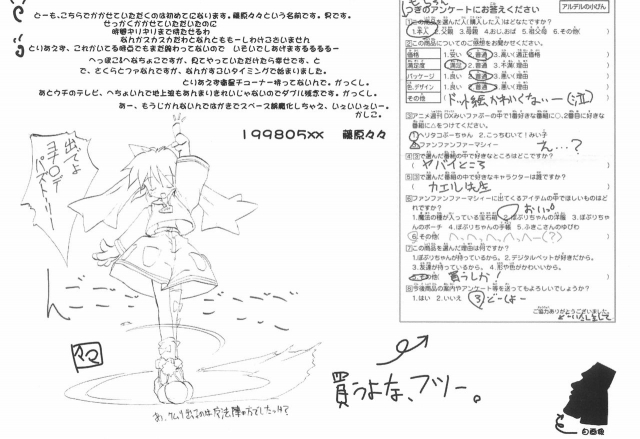 どーも、こちらでかかせていただくのは初めてになります。藤原々々という名前です。見です。
せっかくかかせていただいたのに
時間ギリギリまで待たせるわ
なんかスカスカだわとなんとももーしわけございませんわ
とりあえず、これかいてる時点でもまだ終わってないので いそいでしあげまするるるるー
へっぽこ&へなちょこですが、見てやっていただけたら幸せです、と
で、さくらとファなんですが、なんかすごいタイミングで始まりました。
とりあえず衛星チューナー持ってないんで。がっくし。
あとウチのテレビ、へちょいんで地上波もあんまりきれいじゃないのでダブル残念です。がっくし。
あー、もうじかんないんではがきでスペース誤魔化しちゃえ、いっひいっひぃー。
かしこ。
199805xx 藤原々々
出でよ
ん
買うよな、フツー。
アルデルの小びん
つぎのアンケートにお答えください
1この商品を選んだ人(購入した人)はどなたですか?
1.本人 2.父親 3.母親 4.おじおば 5.祖父母 6.その他( )
2この商品についてのご感想をお聞かせください。
価格 1.安い 2.普通 3.高い(適正価格
満足度 1.満足 2.普通 3.不満(理由
パッケージ 1.良い 2.普通 3.悪い(理由
色、デザイン 1.良い 2.普通 3.悪い(理由
その他 (ドット絵かわくないー(泣)
3アニメ週刊DXみいファぷーの中で1番好きな番組に○、2番目に好きな
番組に△をつけてください。
1ヘリタコぷーちゃん 2.こっちむいて!みい子
3ファンファンファーマシィー え…?
43で選んだ番組の中で好きなところはどこですか?
(ヤバイところ
53で選んだ番組の中で好きなキャラクターは誰ですか?
(カエル店
6ファンファンファーマシィーに出てくるアイテムの中でほしいものはど
れですか?
1.魔法の種が入っている宝石箱 2.ぽぷりちゃんの洋服 3.ぽぷりちゃ
んのポーチ 4.ぽぷりちゃんの手帳 5.ふきこさんのゆびわ
6.その他(へ、へ、へ、へ、へー(?)
7この商品を選んだ理由は何ですか?
1.ぽぷりちゃんが持っているから。 2.デジタルペットが好きだから。
3.友達が持っているから。 4.形や色がかわいいから。
5.その他(買うしか!
8今後商品の案内やアンケート等を送ってもよろしいでしょうか?
1.はい 2.いいえ 3 どーしよー
ご協力ありがとうございました。
どーいたしまして